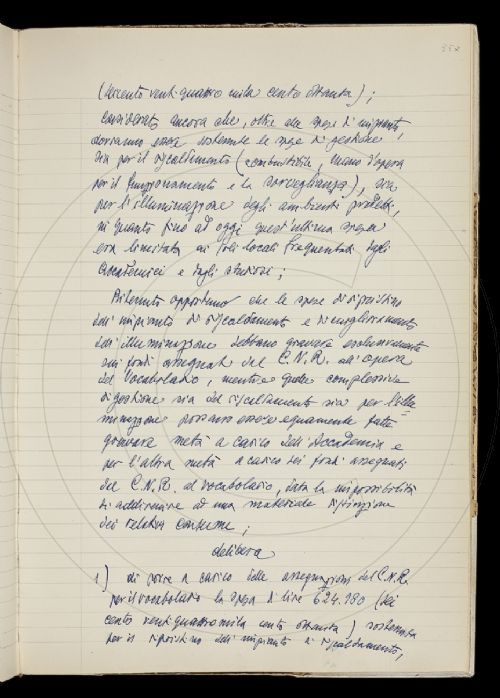 352
(seicento venti quattro mila cento ottanta);
Considerato ancora che, oltre alle spese d'impianto,
dovranno essere sostenute le spese di gestione
sia per il riscaldamento (combustibile, mano d'opera
per il funzionamento e la sorveglianza), sia
per l'illuminazione degli ambienti predetti,
in quanto fino ad oggi quest'ultima spesa
era limitata ai soli locali frequentati dagli
Accademici e dagli studiosi;
Ritenuto opportuno che le spese di ripristino
dell'impianto di riscaldamento e di miglioramento
dell'illuminazione debbano gravare esclusivamente
sui fondi assegnati dal C.N.R. all'opera
del Vocabolario, mentre quelle complessive
di gestione sia del riscaldamento sia per l'illu
minazione possano essere equamente fatte
gravare metà a carico dell'Accademia e
per l'altra metà a carico dei fondi assegnati
dal C.N.R. al Vocabolario, data la impossibilità
di addivenire ad una materiale ripartizione
dei relativi consumi;
delibera
1) di porre a carico delle assegnazioni del C.N.R.
per il vocabolario la spesa di lire 624.180 (sei
cento venti quattro mila cento ottanta) sostenuta
per il ripristino dell'impianto di riscaldamento,